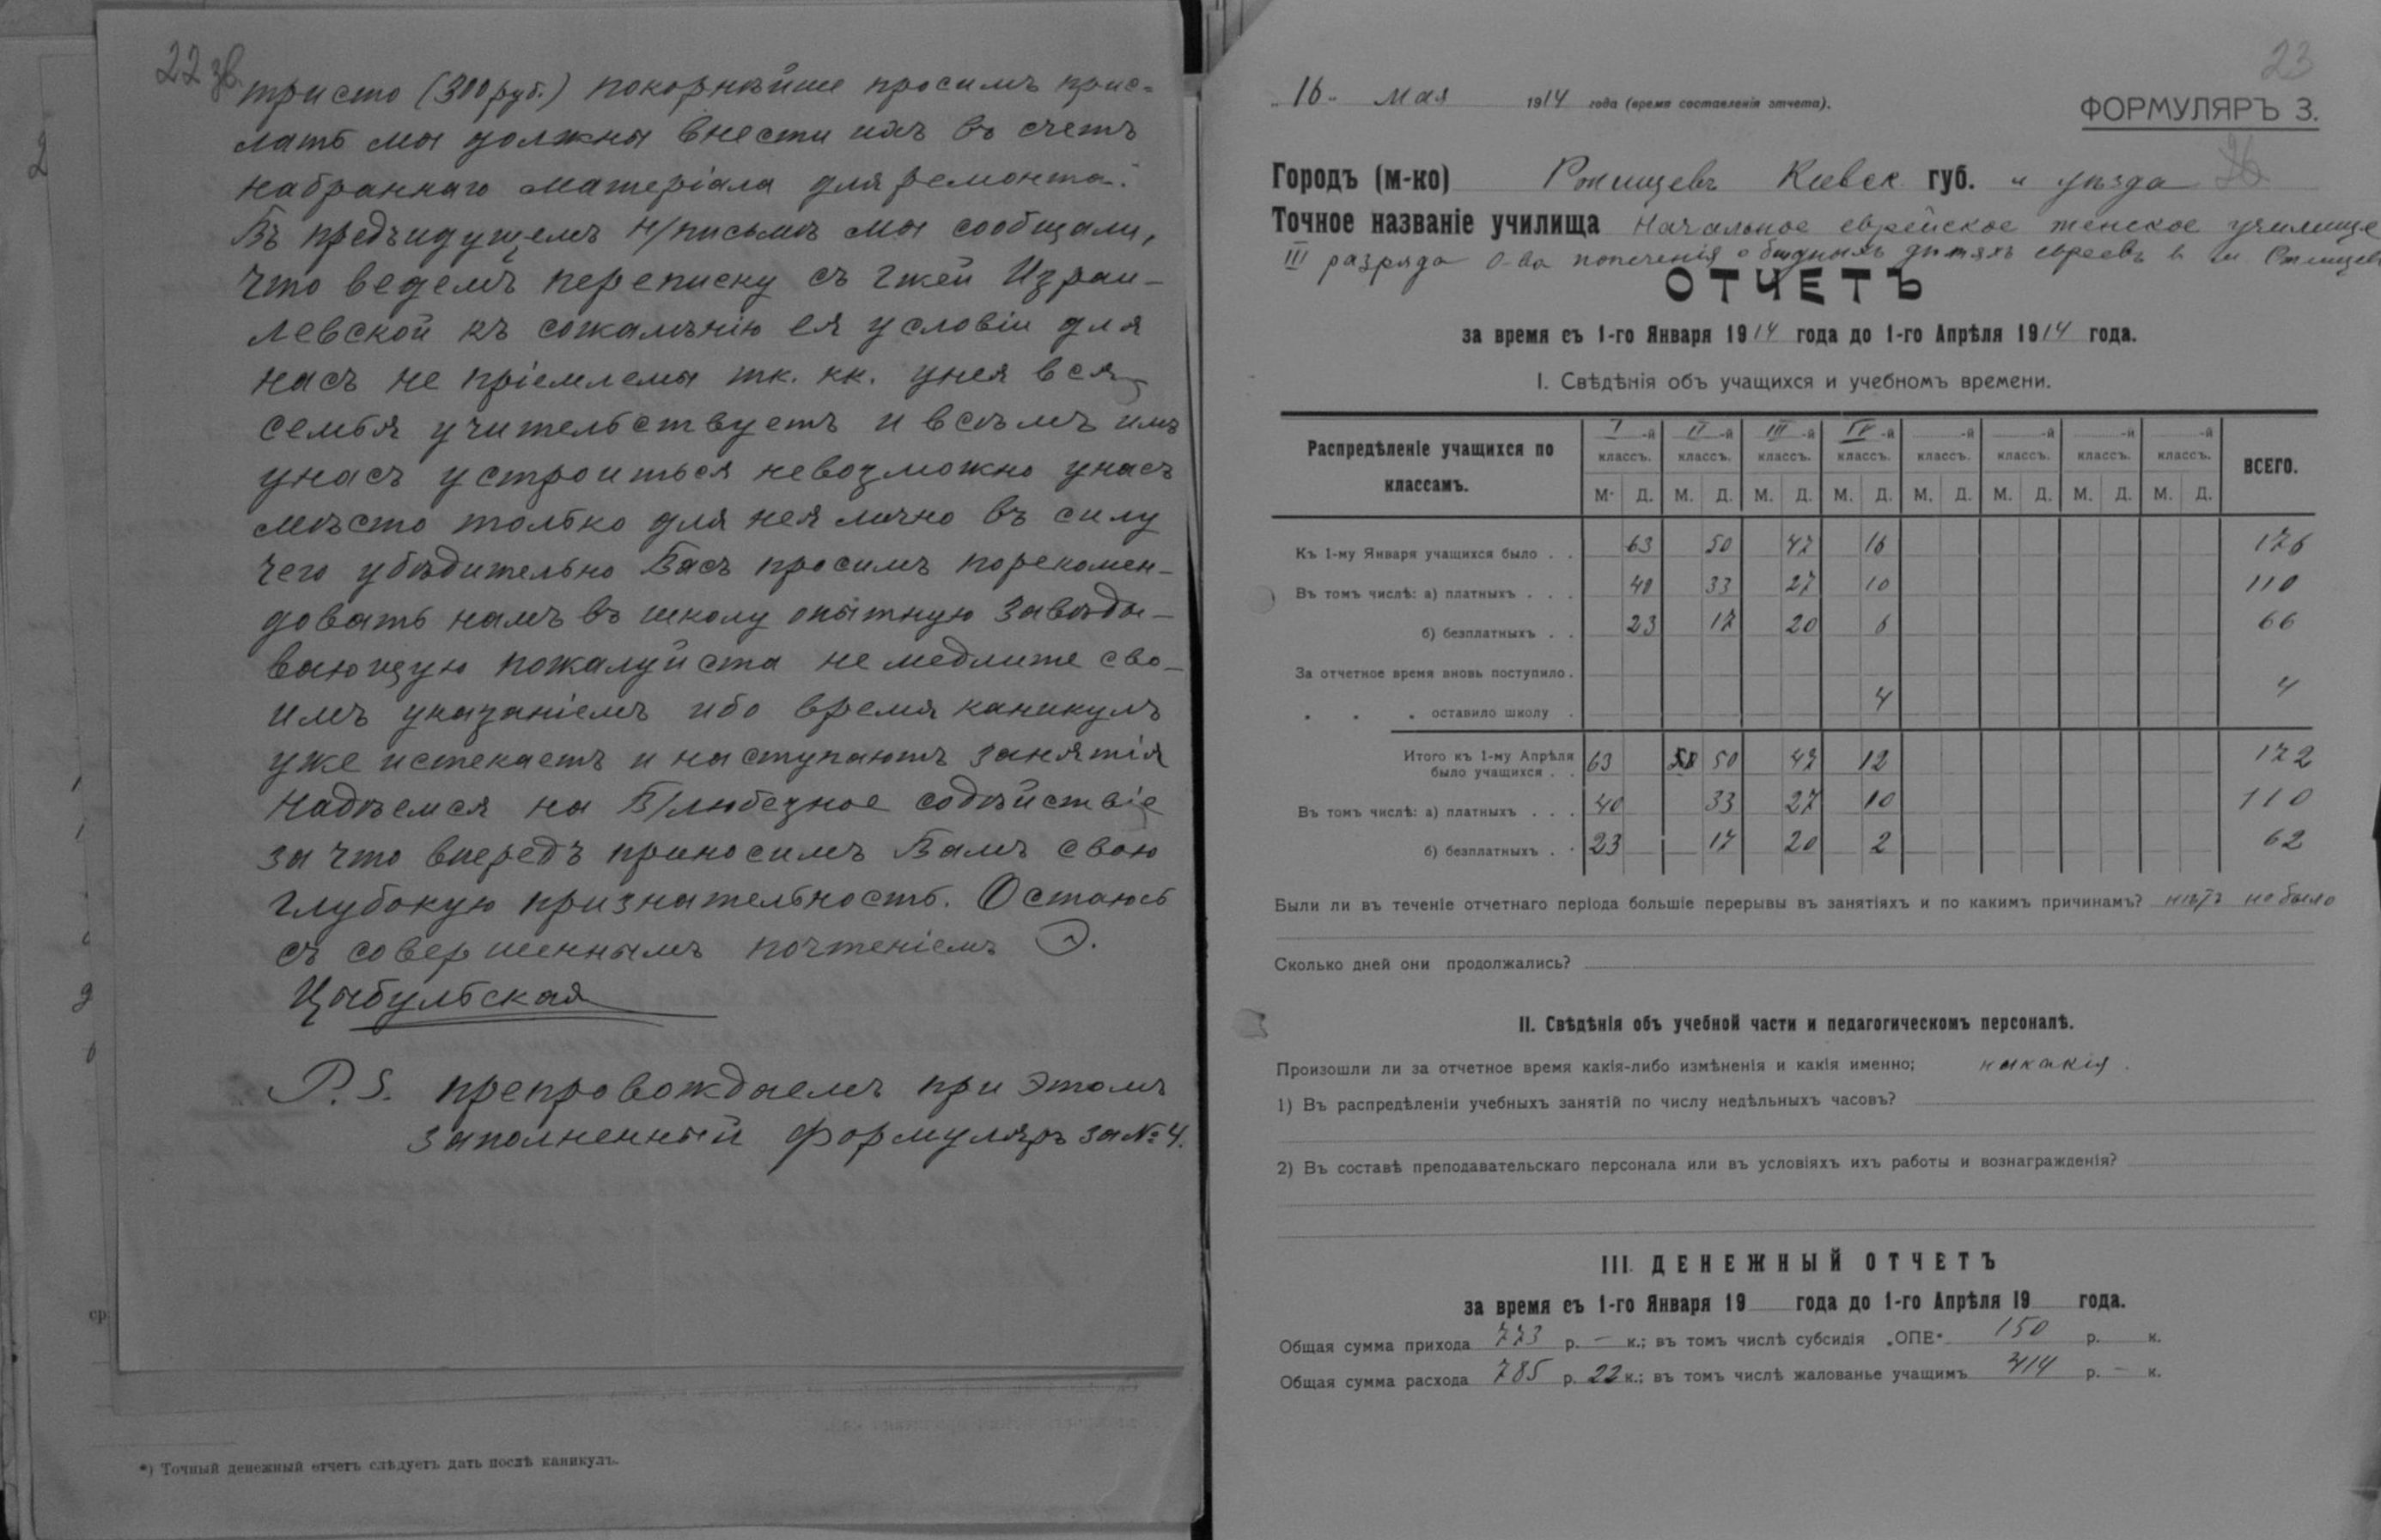 22 зв.
тристо (300 руб.) покорнѣйше просимъ прис-
лать мы должны внести ихъ въ счетъ
набраннаго матеріала для ремонта.
Въ предъидущемъ н/письмѣ мы сообщали,
что ведемъ переписку съ г-жей Израи-
левской къ сожалѣнію ея условіи для
насъ не пріемлемы тк. кк. унея вся
семья учительствуетъ и всѣмъ имъ
унасъ устроиться невозможно унасъ
мѣсто только для нея лично въ силу
чего убѣдительно Васъ просимъ порекомен-
довать намъ въ школу опытную Завѣды-
вающую пожалуйста не медлите сво-
имъ указаніемъ ибо время каникулъ
уже истекаетъ и наступаютъ занятія
Надѣемся на В/любезное содѣйствіе
за что впередъ приносимъ Вамъ свою
глубокую признательность. Остаюсь
съ совершеннымъ почтеніемъ Э.
Цыбульская
P.S. препровождаемъ при этомъ
заполненный формуляръ за № 4.
*) Точный денежный отчетъ слѣдуетъ дать послѣ каникулъ.
23
„16„ Мая 1914 года (время составленія отчета).
ФОРМУЛЯРЪ 3.
Городъ (м-ко) Ржищевъ Киевск. губ. и уѣзда
Точное названіе училища Начальное еврейское женское училище
III разряда О-ва попеченія о бѣдныхъ дѣтяхъ евреевъ в м Ржищевѣ
ОТЧЕТЪ
за время съ 1-го Января 1914 года до 1-го Апрѣля 1914 года.
I. Свѣдѣнія объ учащихся и учебномъ времени.
Распредѣленіе учащихся по классамъ. I -й классъ. II -й классъ. III -й классъ. IV -й классъ. -й классъ. -й классъ. -й классъ. -й классъ. ВСЕГО.
М. Д. М. Д. М. Д. М. Д. М. Д. М. Д. М. Д. М. Д.
Къ 1-му Января учащихся было . . 63 50 47 16 176
Въ томъ числѣ: а) платныхъ . . . 40 33 27 10 110
б) безплатныхъ . . 23 17 20 6 66
За отчетное время вновь поступило .
„ „ „ оставило школу . 4 4
Итого къ 1-му Апрѣля
было учащихся . . 63 50 47 12 172
Въ томъ числѣ: а) платныхъ . . . 40 33 27 10 110
б) безплатныхъ . . 23 17 20 2 62
Были ли въ теченіе отчетнаго періода большіе перерывы въ занятіяхъ и по какимъ причинамъ? нѣтъ не было
Сколько дней они продолжались?
II. Свѣдѣнія объ учебной части и педагогическомъ персоналѣ.
Произошли ли за отчетное время какія-либо измѣненія и какія именно; никакія.
1) Въ распредѣленіи учебныхъ занятій по числу недѣльныхъ часовъ?
2) Въ составѣ преподавательскаго персонала или въ условіяхъ ихъ работы и вознагражденія?
III. ДЕНЕЖНЫЙ ОТЧЕТЪ
за время съ 1-го Января 19 года до 1-го Апрѣля 19 года.
Общая сумма прихода 773 р. — к.; въ томъ числѣ субсидія „ОПЕ“ 150 р. к.
Общая сумма расхода 785 р. 22 к.; въ томъ числѣ жалованье учащимъ 414 р. — к.